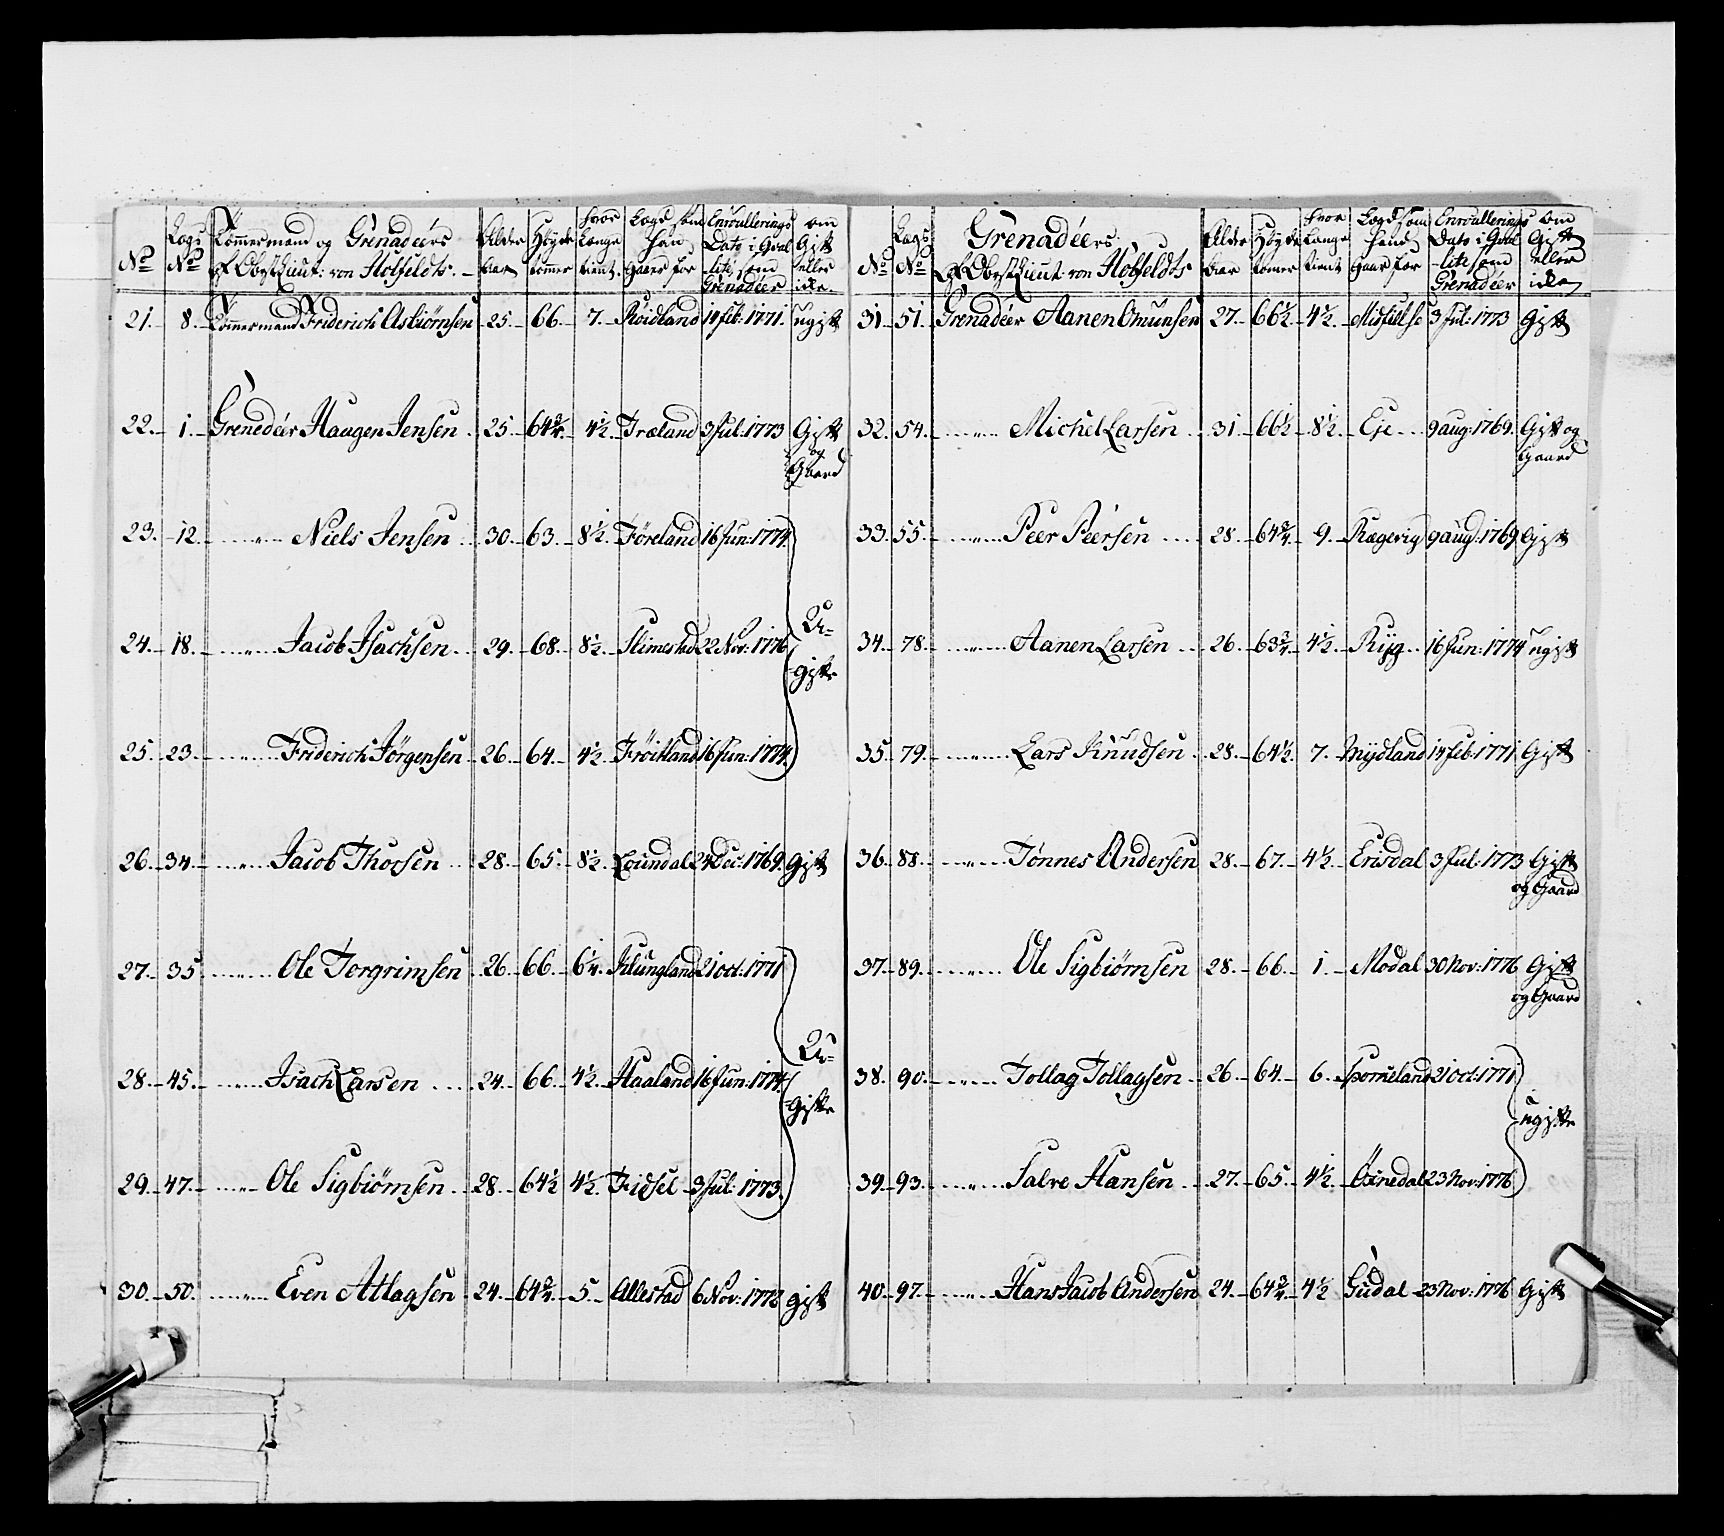 No Lægs No Tømmermænd og Grenadéers af Obrist Lieut: von Holfeldts. Alder Aar Høyde Tommer hvor Længe tient Lægd som han Gaaer for Enroullerings Dato i Qvalité som Grenadéer om Gift eller icke
21. 8. Tømmermand Friderich Asbiørnsen 25. 66. 7. Røidland 14 feb: 1771. ugift
22. 1. Grenedéer Haagen Jensen 25. 64 3/4. 4 1/2. Træland 3 Jul: 1773 Gift
og
Gaard
23. 12. Niels Jensen 30. 63. 8 1/2. Föreland 16 Jun: 1774.
24. 18. Jacob Isachsen 29. 68. 8 1/2. Slimestad 22 Nov: 1776 U=
gifte
25. 23. Friderich Jörgensen 26. 64. 4 1/2. Fröitland 16 Jun: 1774.
26. 34. Jacob Thorsen 28. 65. 8 1/2. Loundal 24 Dec: 1769. Gift
27. 35. Ole Torgrimsen 26. 66. 6 1/4. Klungland 21 oct: 1771
28. 45. Isach Larsen 24. 66. 4 1/2. Haaland 16 Jun: 1774. U=
gifte
29. 47. Ole Sigbiørnsen 28. 64 1/2 4 1/2. Fidsel 3 Jul: 1773.
30. 50. Even Atlagsen 24. 64 3/4. 5. Allestad 6 Nov: 1772 gift
No Lægs No Grenadéers af Obrist Lieut von Holfeldts Alder Aar Høyde Tommer hvor Længe tient Lægd som hand Gaar for Enroullerings Dato i Qvalité som Grenadéer om Gift eller icke
31. 51. Grenadéer Aanen Omunsen 27. 66 1/2 4 1/2. 3 Jul: 1773 Gift
32. 54. Michel Larsen 31. 66 1/2 8 1/2. Eje 9 aug: 1769. Gift og
Gaard
33. 55. Peer Péersen 28. 64 3/4. 9. Rægevig 9 aug: 1769 Gift
34. 78. Aanen Larsen 26. 63 3/4. 4 1/2. Ryg 16 Jun: 1774 ugift
35. 79. Lars Knudsen 28. 64 1/2. 7. Mydland 14 feb: 1771 Gift
36. 88. Tønnes Andersen 28. 67. 4 1/2. Erisdal 3 Jul: 1773 Gift
og Gaard
37. 89. Ole Sigbiørnsen 28. 66. 1. Modal 30 Nov: 1776 Gift
og Gaard
38. 90. Tollag Tollagsen 26. 64. 6. 21 oct: 1771
ugifte
39. 93. Salve Hansen 27. 65. 4 1/2. Ösinedal 23 Nov: 1776
40. 97. Hans Jacob Andersen 24. 64 3/4. 4 1/2 Gudal 23 Nov: 1776 Gift